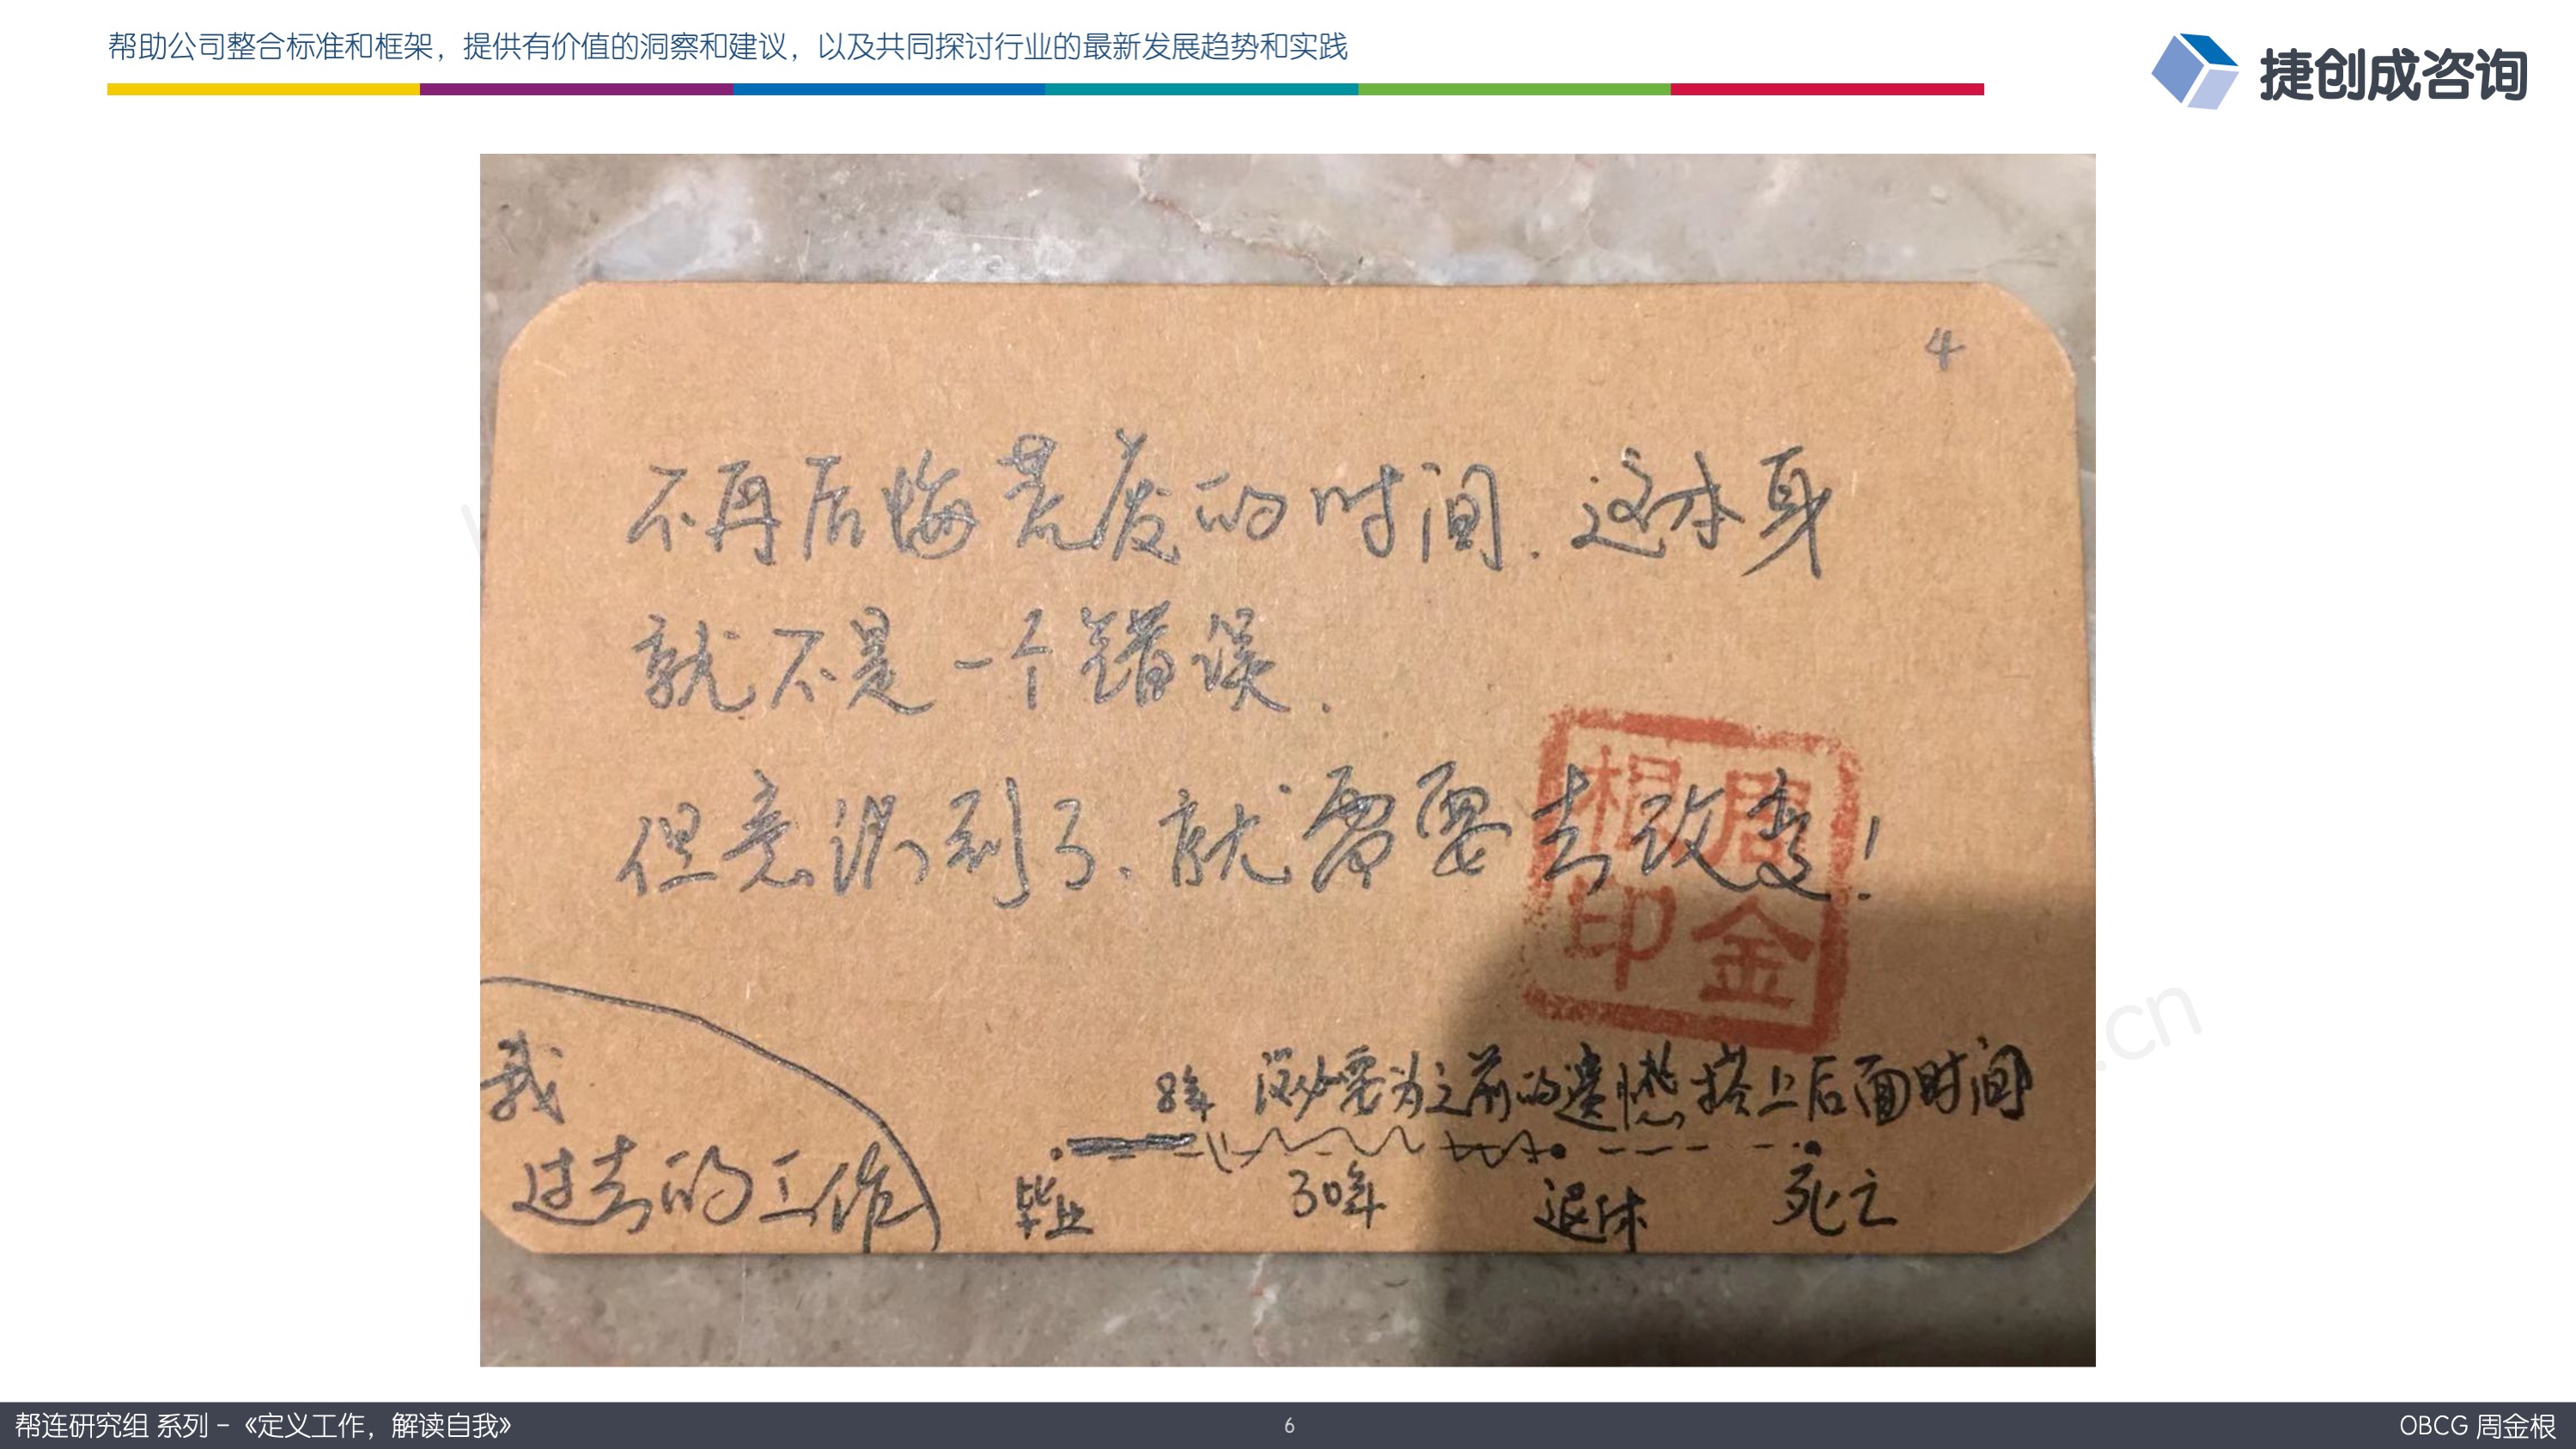 帮助公司整合标准和框架，提供有价值的洞察和建议，以及共同探讨行业的最新发展趋势和实践
捷创成咨询
4
不再后悔荒废的时间.这本身
就不是一个错误.
但意识到了、就需要去改变！
周金根印
我
过去的工作
8年 没必要为之前的遗憾搭上后面时间
毕业 30年 退休 死亡
.cn
帮连研究组 系列 - 《定义工作，解读自我》
6
OBCG 周金根